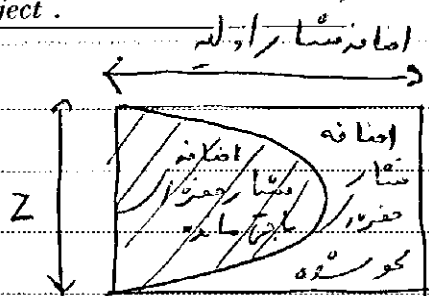 ject .
اضافه فشار اولیه
Z
اضافه
فشار حفره‌ای
باقی مانده
اضافه
فشار
حفره‌ای
محو شده